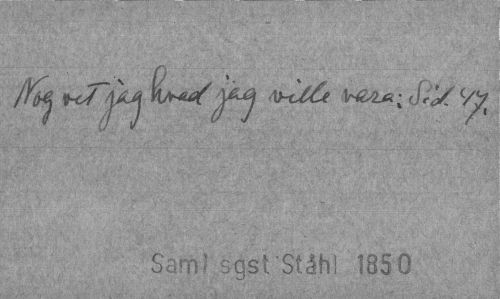 Nog vet jag hvad jag ville vara: Sid. 47.
Saml sgst Ståhl 1850